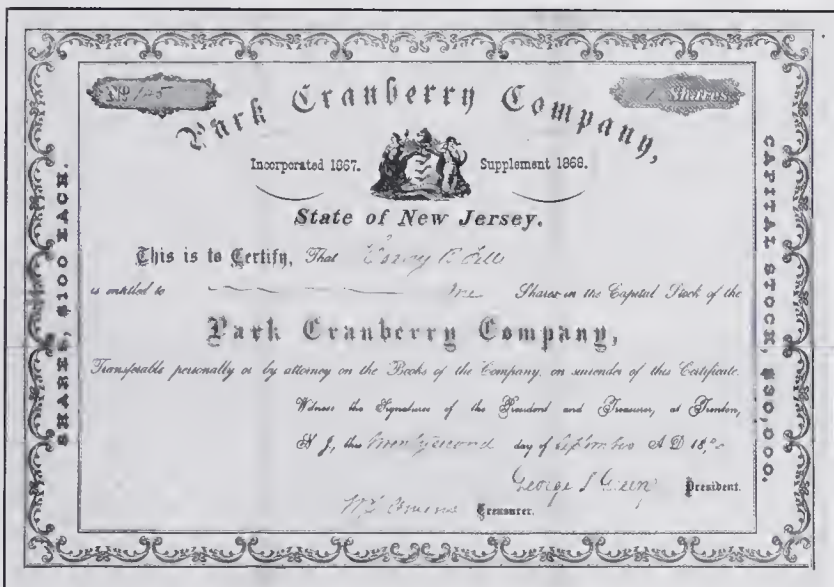 No 125
1 Shares
Park Cranberry Company,
Incorporated 1867.
Supplement 1868.
State of New Jersey.
This is to Certify, That
is entitled to One Shares in the Capital Stock of the
Park Cranberry Company,
Transferable personally or by attorney on the Books of the Company, on surrender of this Certificate.
Witness the Signatures of the President and Treasurer, at Trenton,
N J, this twenty second day of September A D 18
George S Green President.
Treasurer.
SHARES, $100 EACH.
CAPITAL STOCK, $30,000.